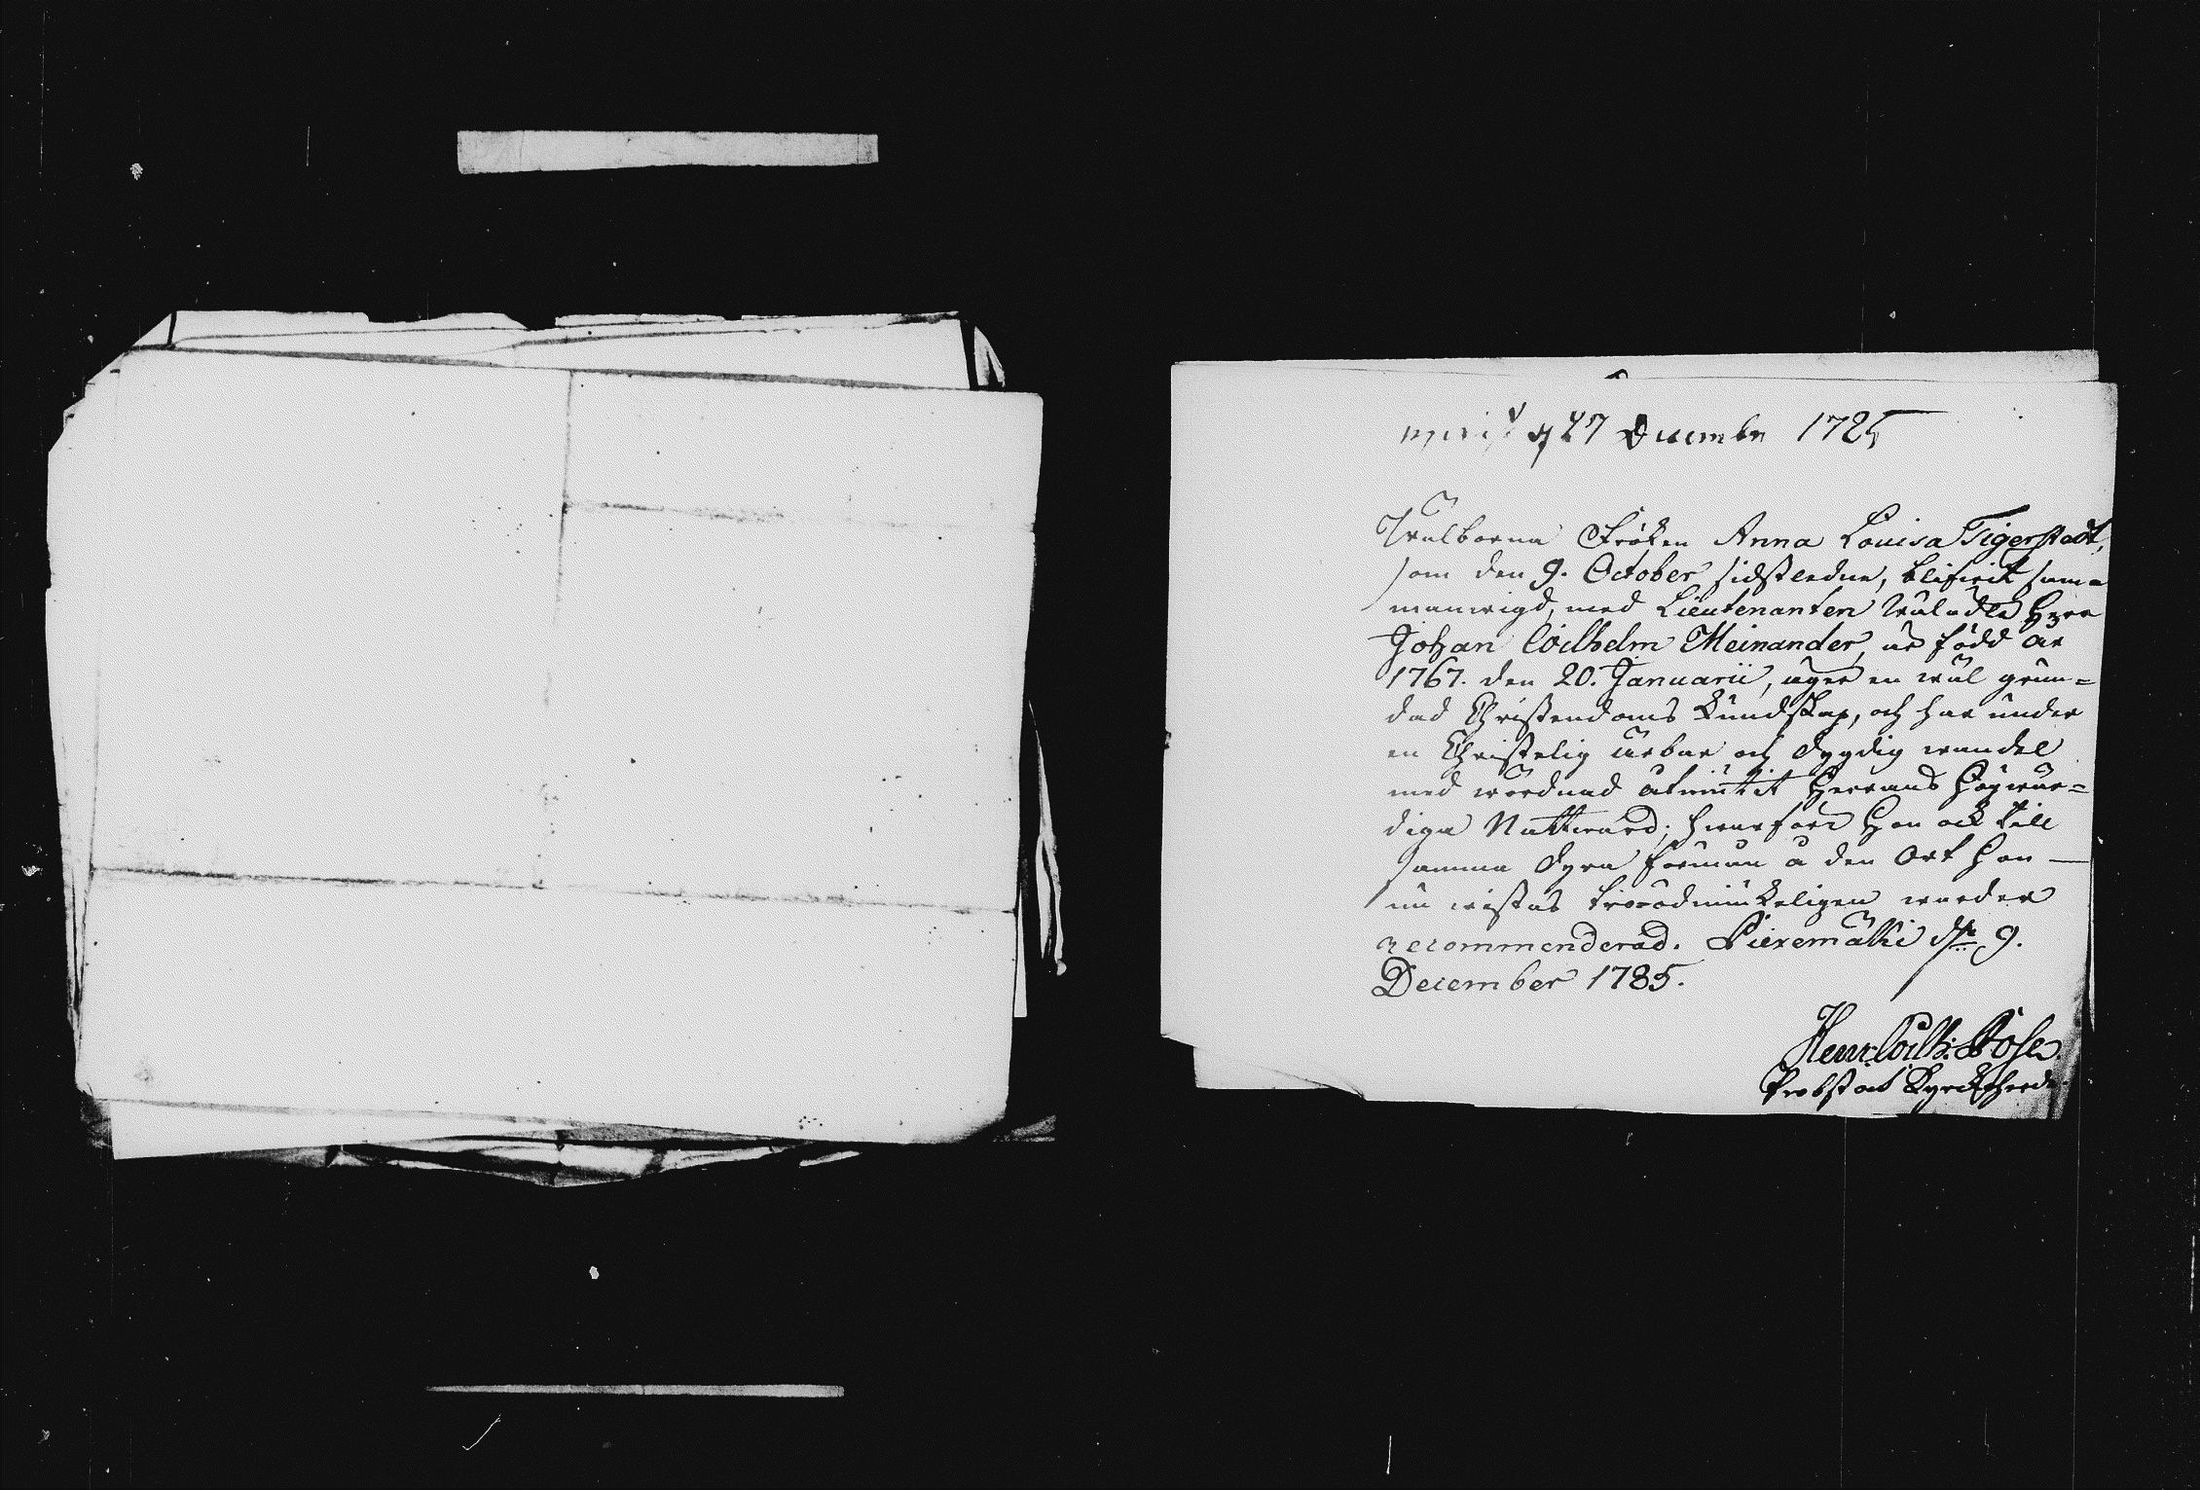 27 Decembr 1785
Wälborna Fröken Anna Lovisa Tigerstedt,
som den 9. October sidstledne, blifwit sam=
manwigd, med Lieutenanten Wäladle Herr
Johan Wilhelm Meinander, är född år
1767. den 20. Januarii, äger en wäl grun=
dad Christendoms Kundskap, och har under
en Christelig ärbar och dygdig wandel
med wördnad åtniutit Herrans Högwär=
diga Nattward; hwarföre Hon ock till
samma dyra förmån å den Ort Hon —
nu wistas
recommenderad. Piexemäki d. 9.
December 1785.
Henr. Wilh. Pose.
Probst och Kyrckoherde.